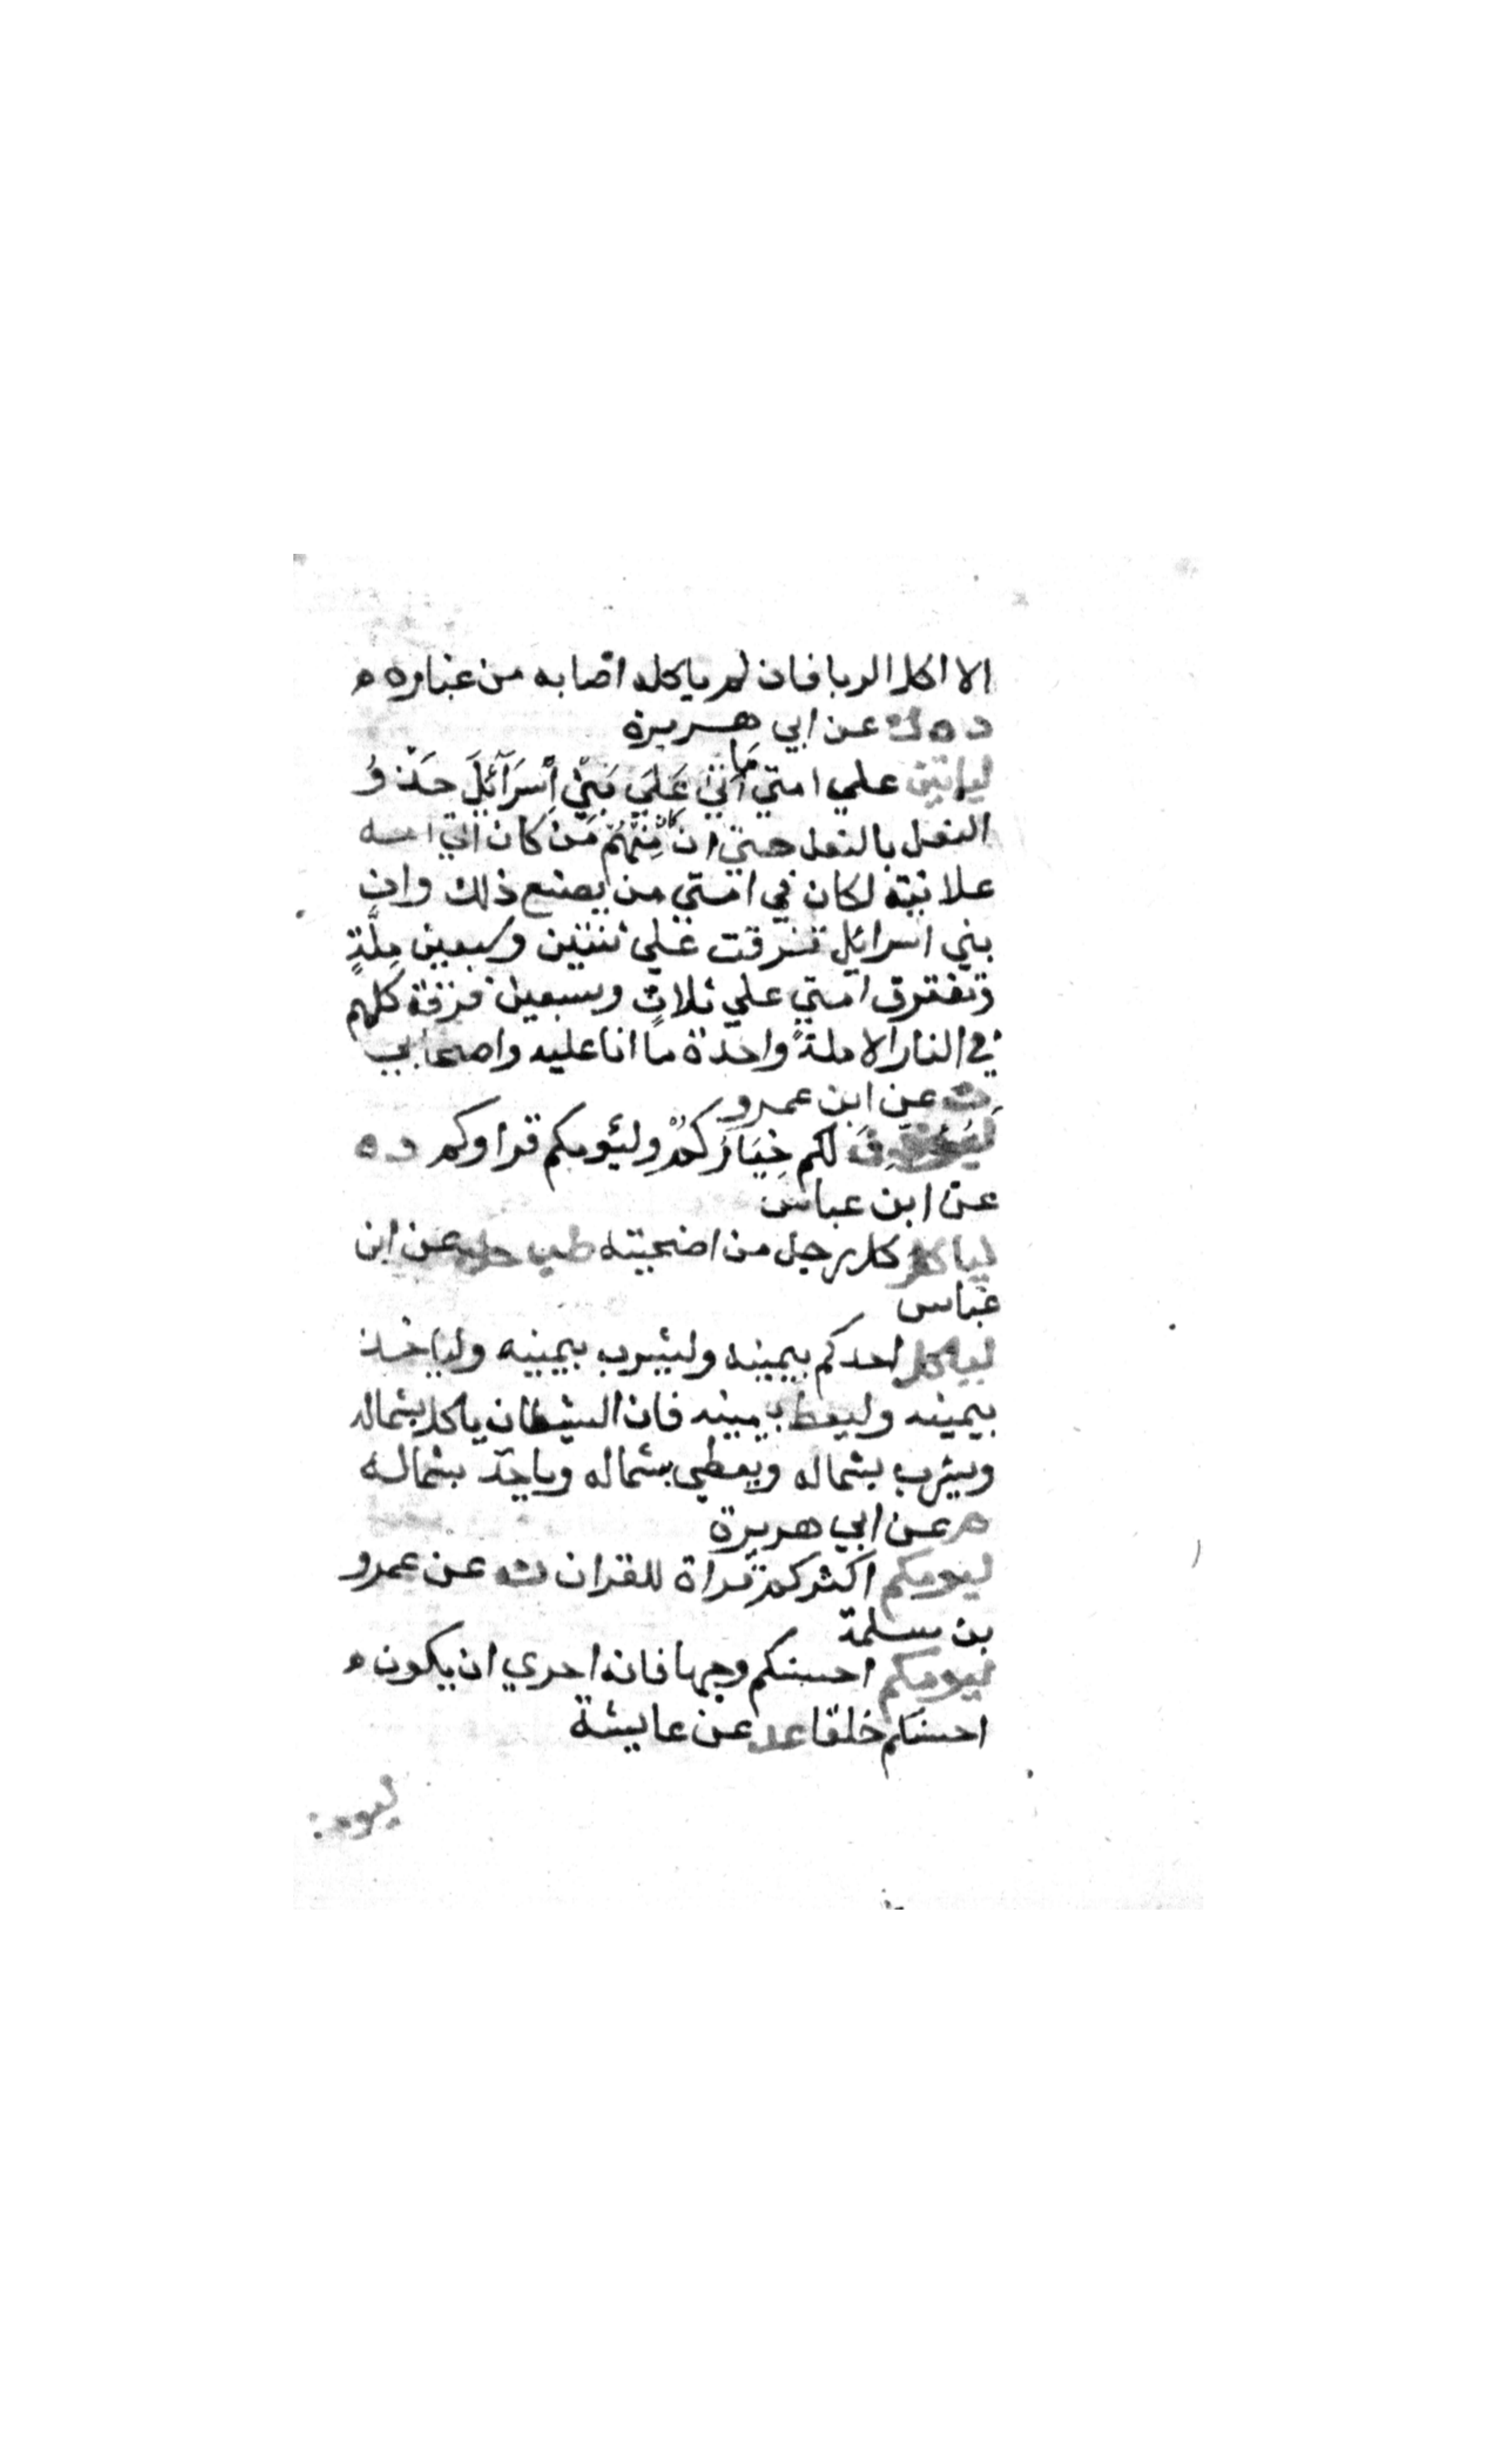 الا اكل الربا فان لم ياكله اصابه من غباره ه
د ه ك عن ابي هريرة
لياتين علي امتي مَا اَتَيٰ عَلَي بَنِيْ اِسْرَآئِلَ حَذْوُ
النعل بالنعل حتي ان كان مِنْهُمْ مَن كان اتي امه
علانية لكان في امتي من يصنع ذلك وان
بني اسرائل تفرقت علي ثنتين وسبعين مِلَّةٍ
وتفترق امتي علي ثلاث وسبعين فرقة كلهم
في النار الا ملةً واحدة ما انا عليه واصحابي
ت عن ابن عمرو
لكم خِيَارُكُمْ وليؤمكم قراوكم د ه
عن ابن عباس
لياكل كل رجل من اضحيته طب حل عن ابن
عباس
لياكل احدكم بيمينه وليشرب بيمينه ولياخذ
بيمينه وليعط بيمينه فان الشيطان ياكل بشماله
ويشرب بشماله ويعطي بشماله وياخذ بشماله
ه عن ابي هريرة
ليومكم اكثركم قراة للقران ن عن عمرو
بن سلمة
ليومكم احسنكم وجها فانه احري ان يكون ه
احسنكم خلقا عد عن عايشة